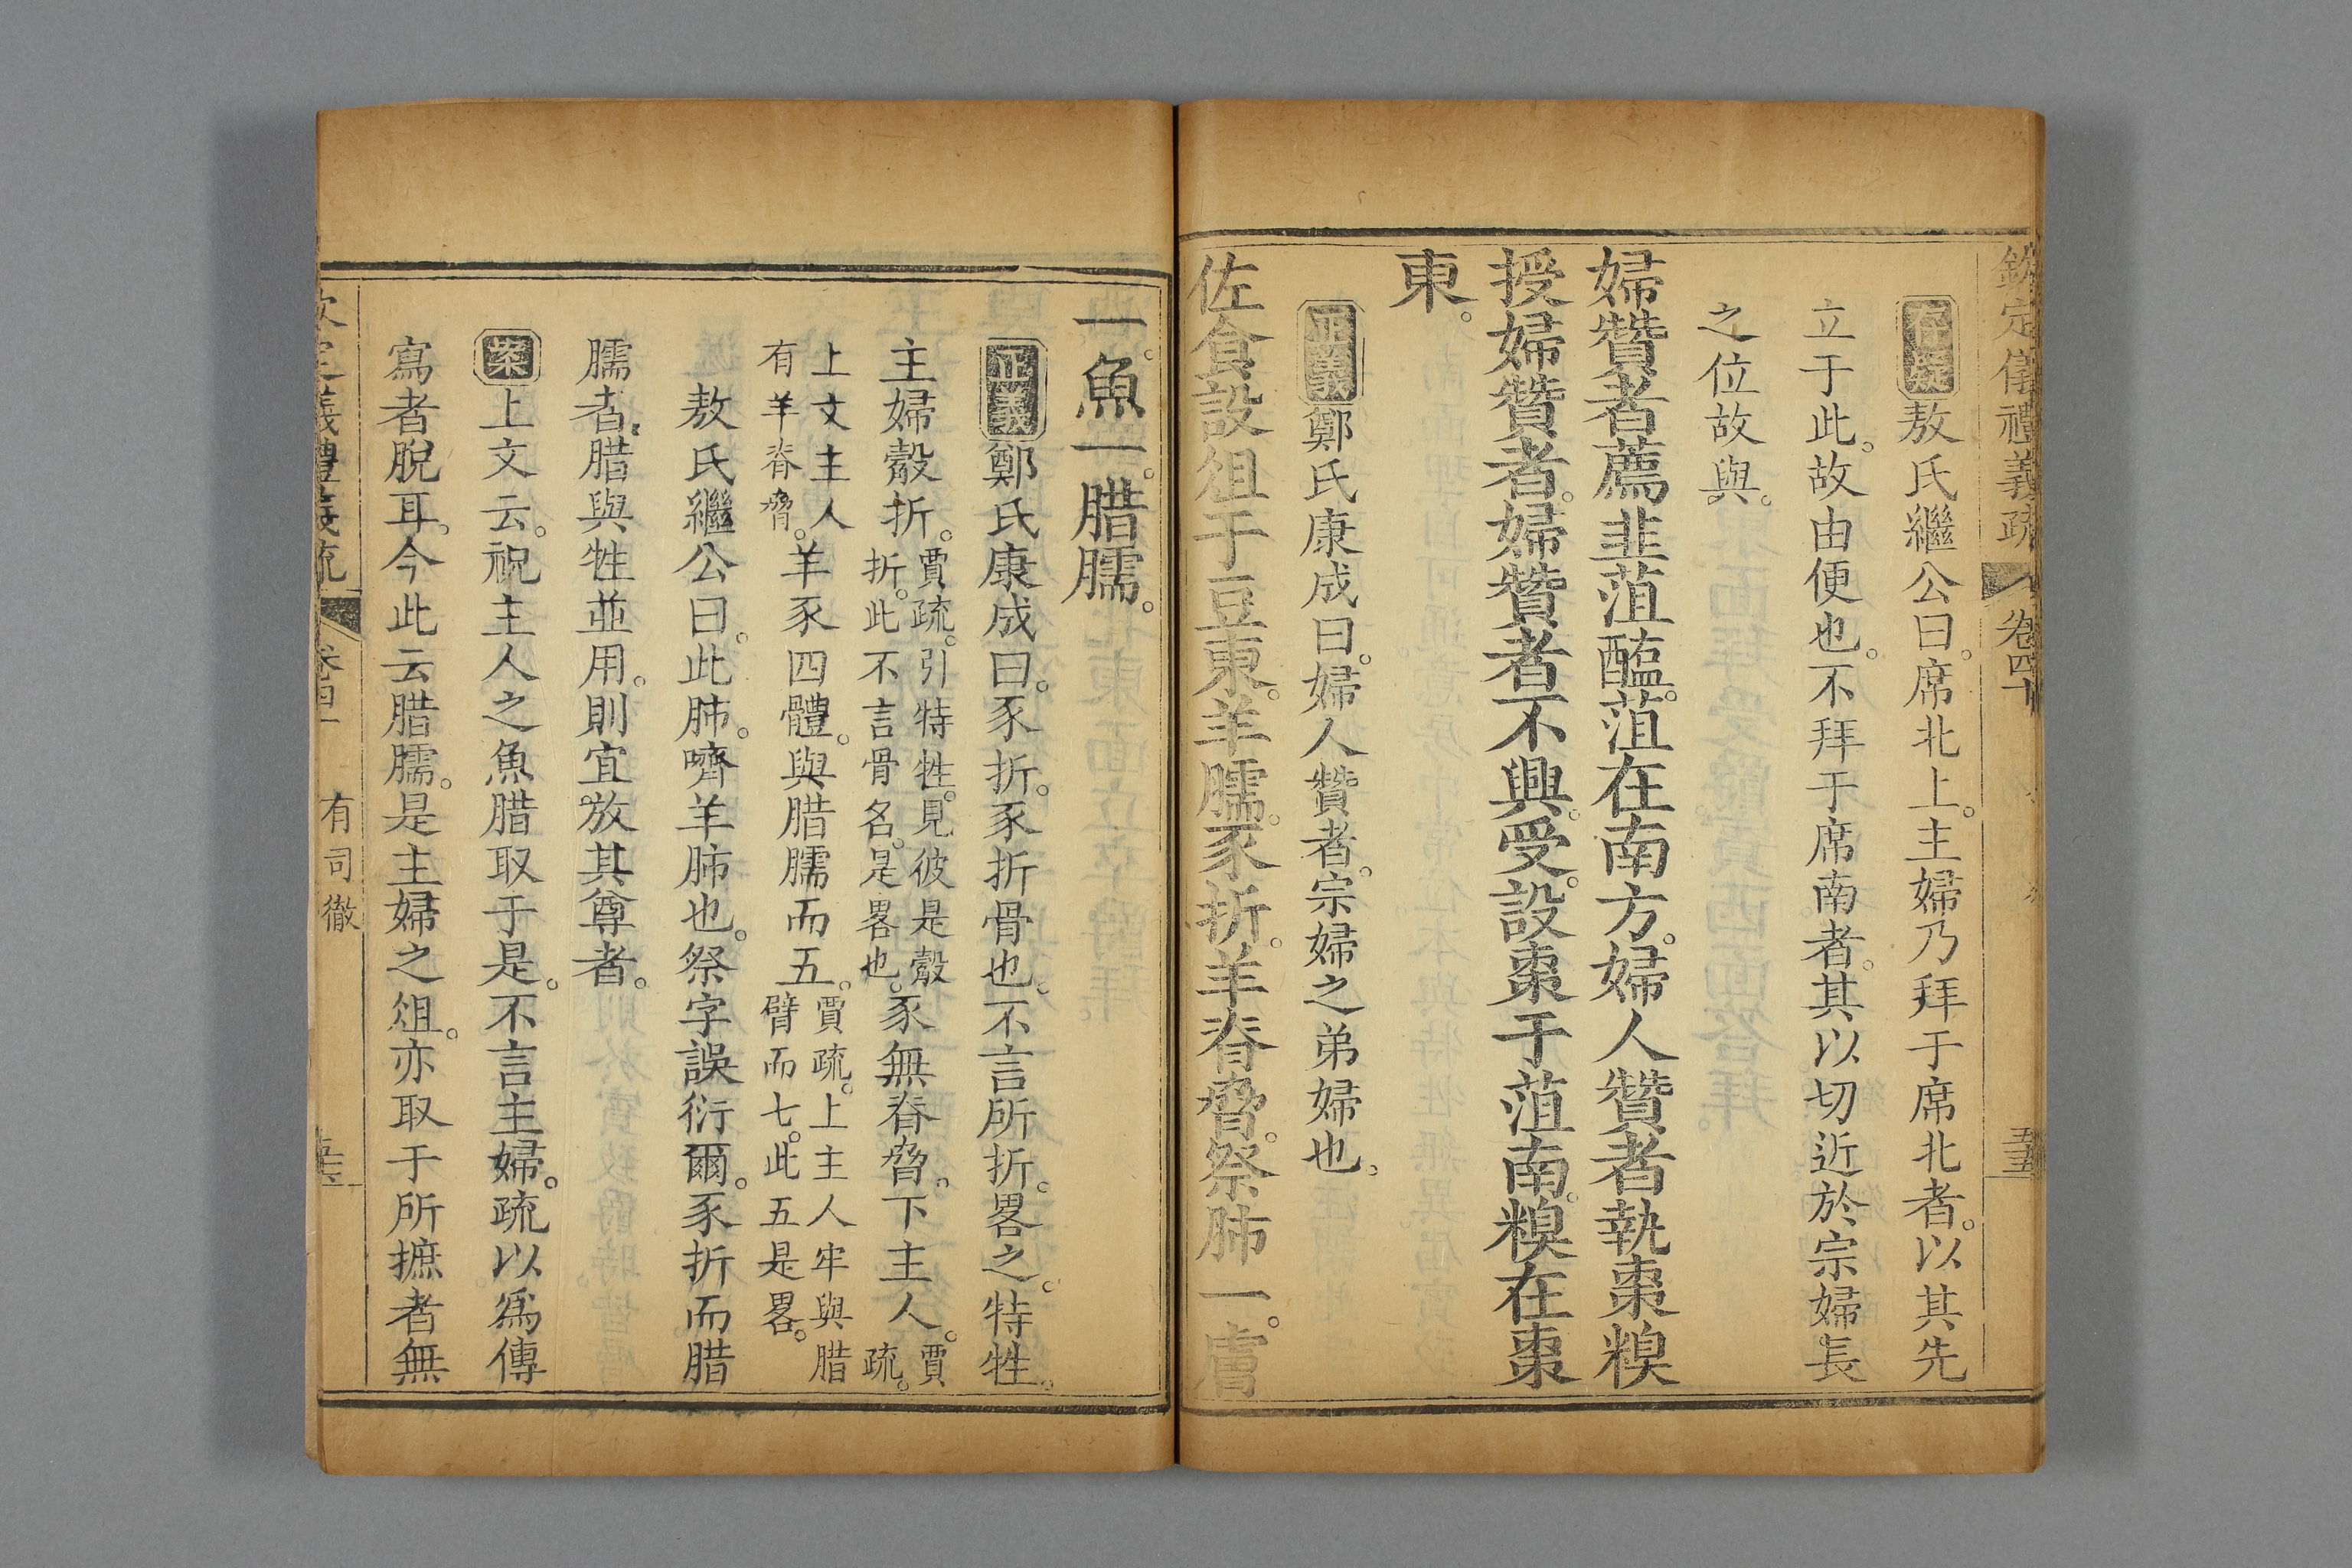 欽定儀禮義疏 卷四十
存疑敖氏繼公曰。席北上。主婦乃拜于席北者。以其先
立于此。故由便也。不拜于席南者。其以切近於宗婦長
之位故與。
婦贊者薦韭菹醢。菹在南方。婦人贊者執棗糗
授婦贊者。婦贊者不興受。設棗于菹南。糗在棗
東。
正義鄭氏康成曰。婦人贊者。宗婦之弟婦也。
佐食設俎于豆東。羊臑。豕折。羊脊脅。祭肺一。膚
一。魚一。腊臑。
正義鄭氏康成曰。豕折。豕折骨也。不言所折。畧之。特牲。
主婦觳折。賈疏。引特牲。見彼是觳折。此不言骨名。是畧也。豕無脊脅。下主人。賈疏。
上文主人有羊脊脅。羊豕四體。與腊臑而五。賈疏。上主人牢與腊臂而七。此五是畧。
敖氏繼公曰。此肺。嚌羊肺也。祭字誤衍爾。豕折而腊
臑者。腊與牲並用。則宜放其尊者。
案上文云。祝主人之魚腊取于是。不言主婦。疏以爲傳
寫者脫耳。今此云腊臑。是主婦之俎。亦取于所摭者無
欽定儀禮義疏 卷四十 有司徹